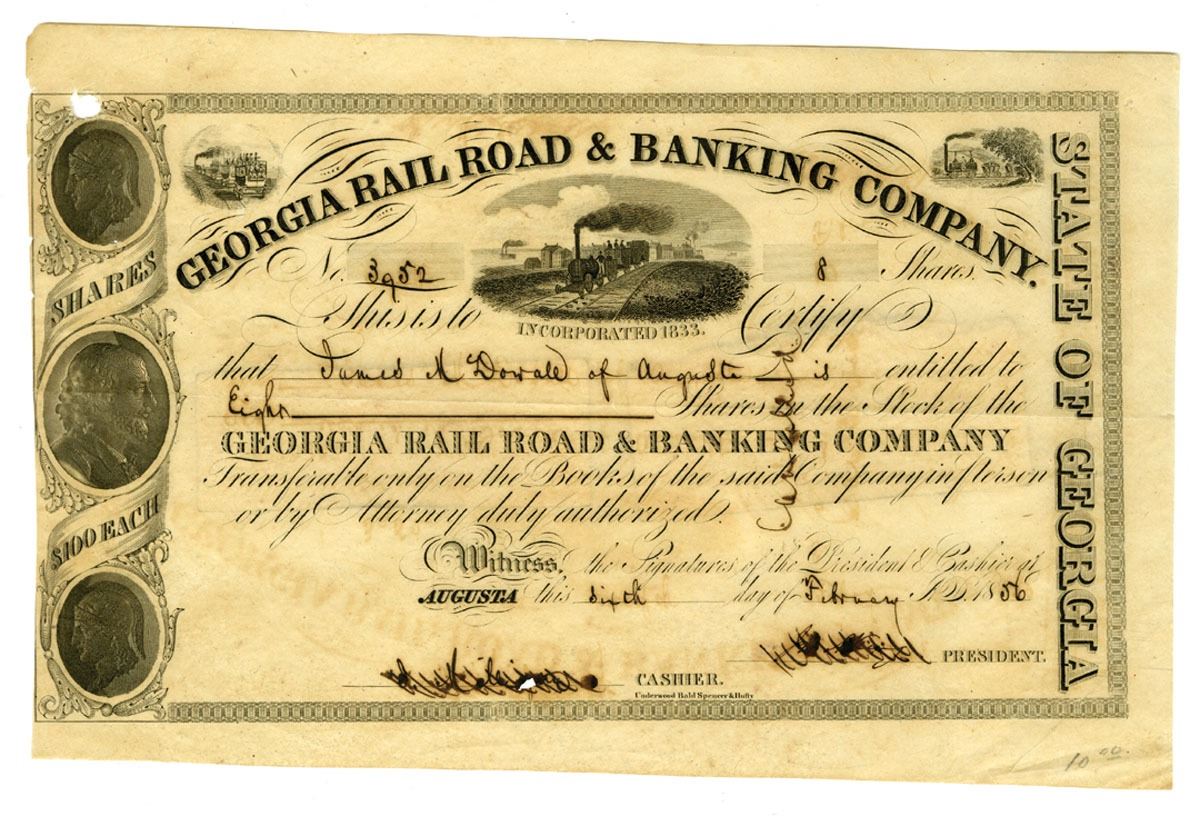 GEORGIA RAIL ROAD & BANKING COMPANY.
No. 3952
8 Shares.
INCORPORATED 1833.
This is to Certify
that James McDowall of Augusta is entitled to
Eight Shares in the Stock of the
GEORGIA RAIL ROAD & BANKING COMPANY
Transferable only on the Books of the said Company in person
or by Attorney duly authorized.
Witness, the Signatures of the President & Cashier at
AUGUSTA this sixth day of February A.D. 1856
PRESIDENT.
CASHIER.
Underwood Bald Spencer & Hufty
SHARES
$100 EACH
STATE OF GEORGIA
Cancelled
10 00.